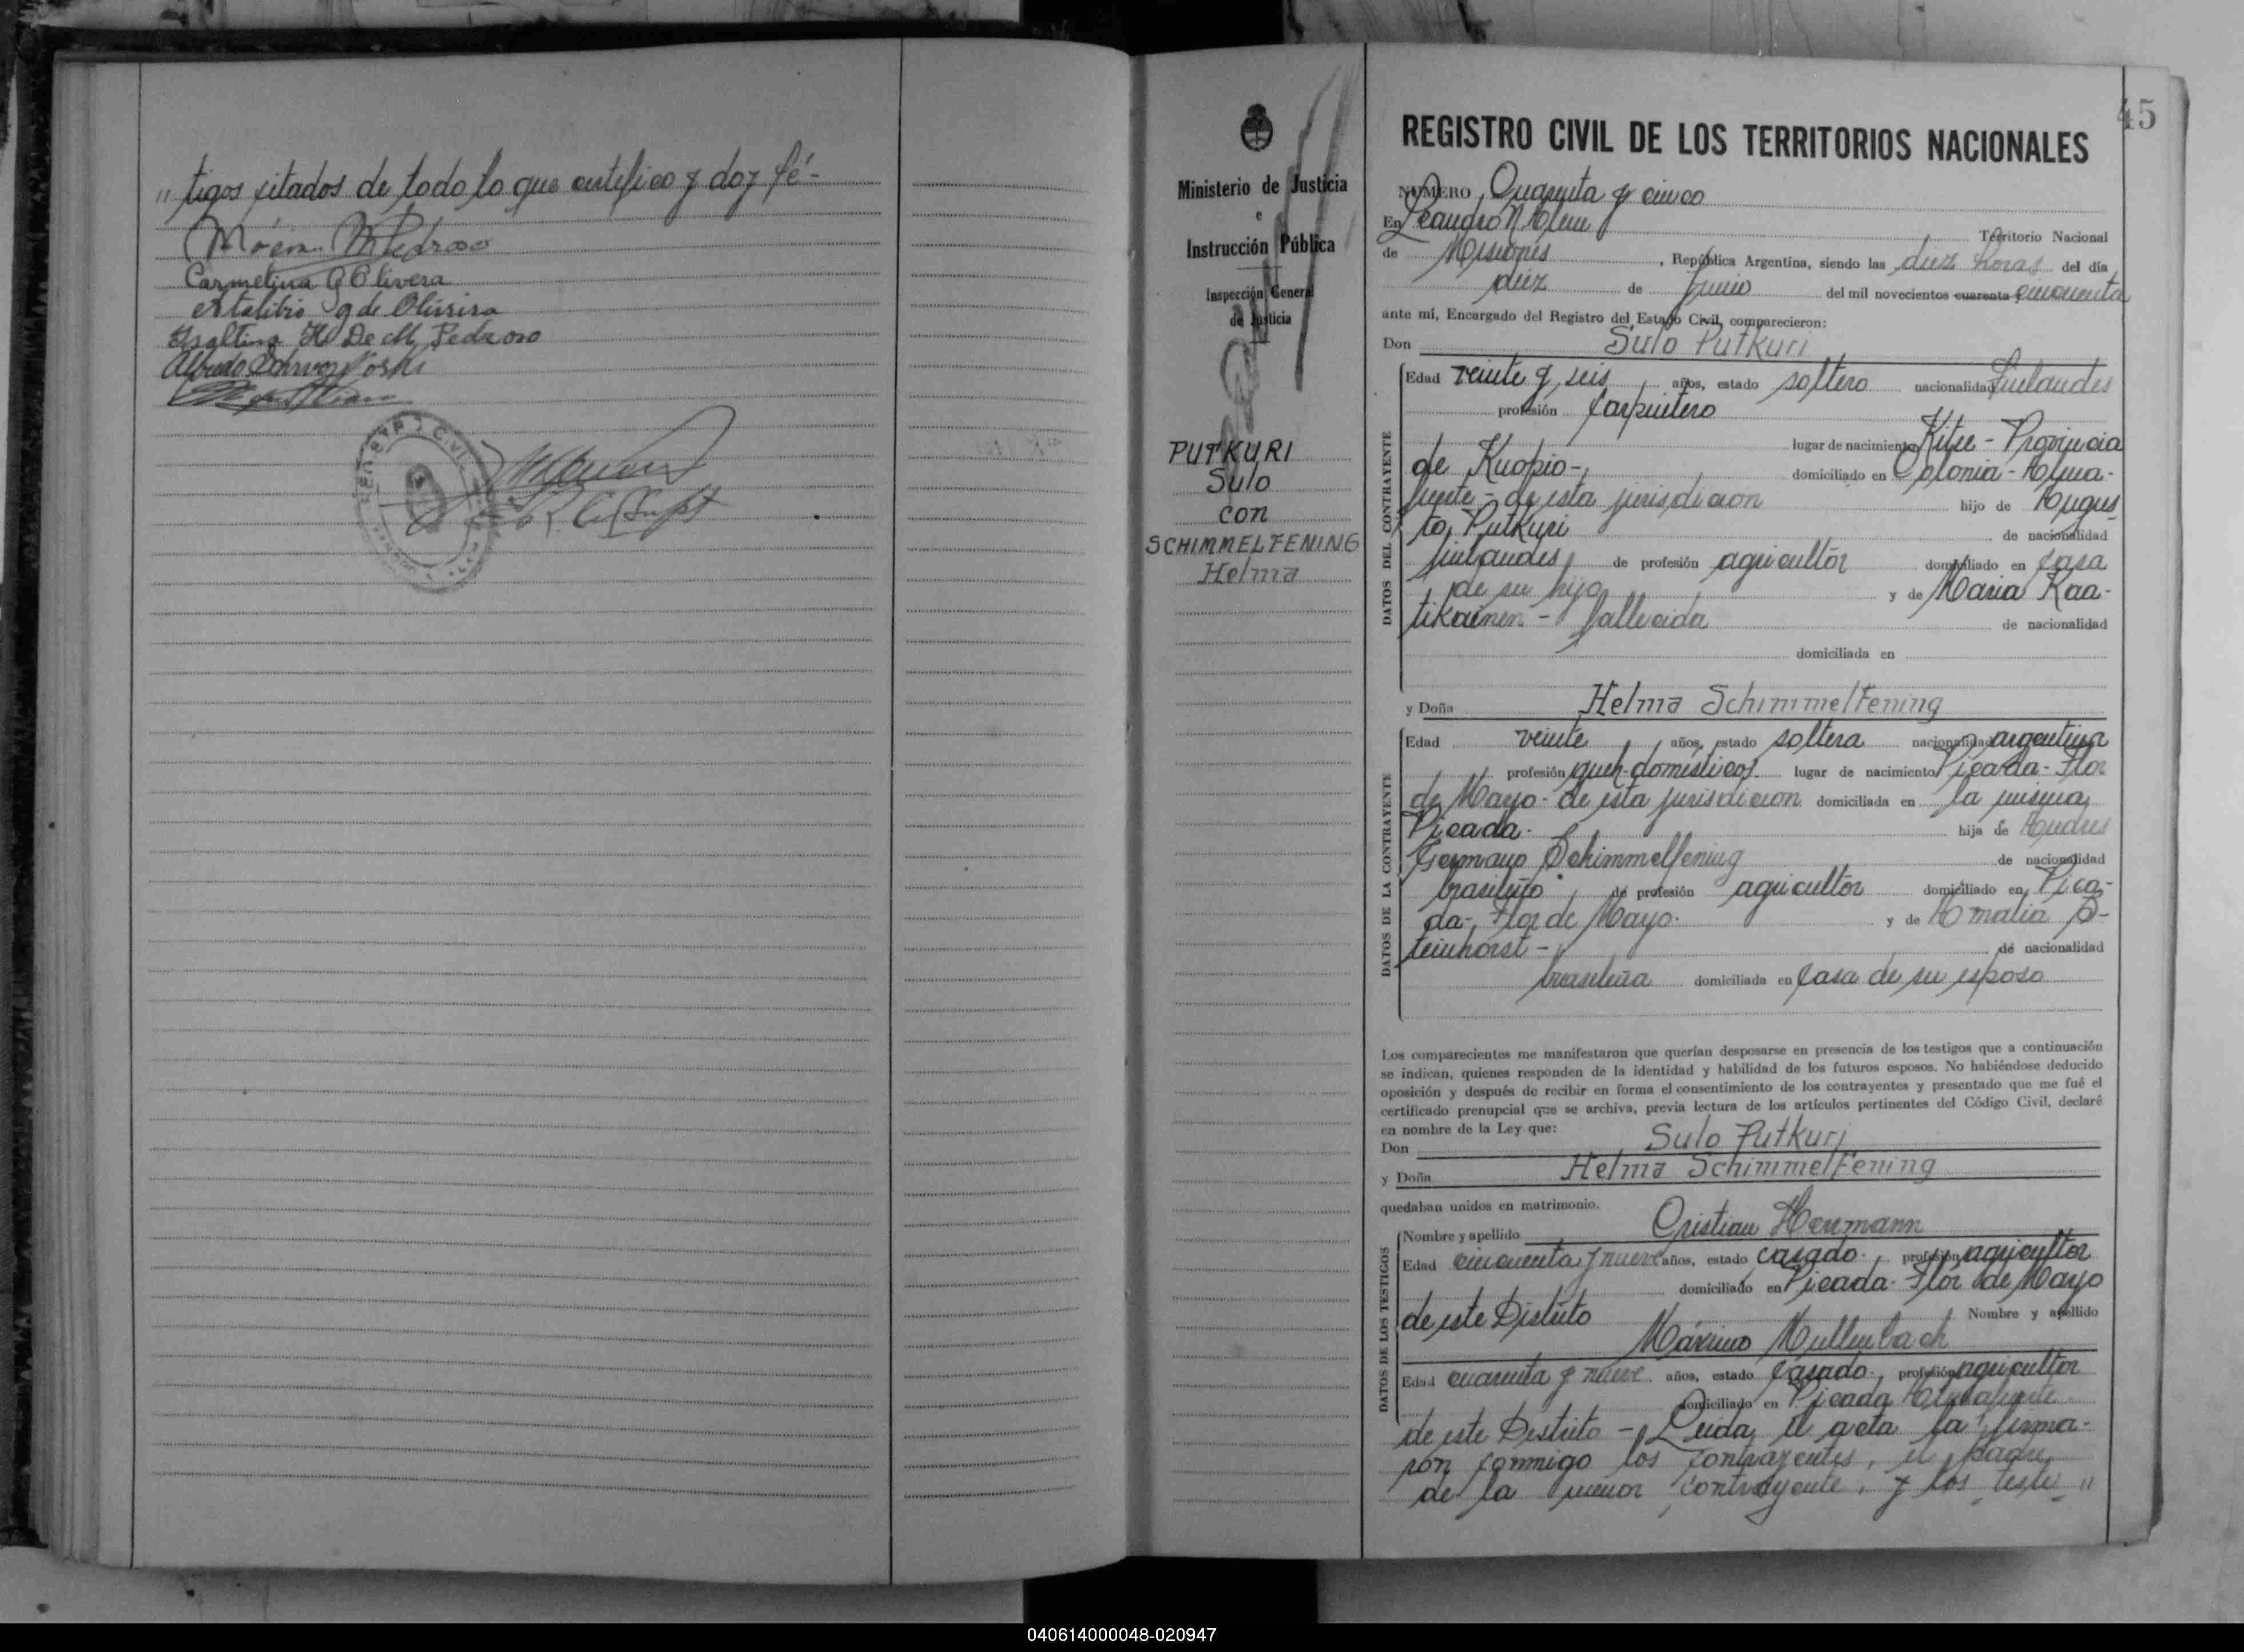 " tigos sitados de todo lo que certifico y doy fé-
M Pedroso
Carmelina G Olivera
g de Olivera
H De M Pedroso
Alfredo
45
REGISTRO CIVIL DE LOS TERRITORIOS NACIONALES
Ministerio de Justicia
e
Instrucción Pública
Inspección General
de Justicia
PUTKURI
Sulo
con
SCHIMMELFENING
Helma
NÚMERO Cuarenta y cinco
En Leandro N Alem
Territorio Nacional
de Misiones, República Argentina, siendo las diez horas del día
diez de Junio del mil novecientos cuarenta cincuenta
ante mí, Encargado del Registro del Estado Civil, comparecieron:
Don Sulo Putkuri
DATOS DEL CONTRAYENTE
Edad veinte y seis años, estado soltero nacionalidad finlandes
profesión Carpintero
lugar de nacimiento Kitee - Provincia
de Kuopio - domiciliado en Colonia - Alma-
fuerte - de esta jurisdicion hijo de Augus
to Putkuri de nacionalidad
finlandes de profesión agricultor domiciliado en casa
de su hijo y de Maria Kaa-
tikainen - fallecida de nacionalidad
domiciliada en
y Doña Helma Schimmelfening
DATOS DE LA CONTRAYENTE
Edad veinte años, estado soltera nacionalidad argentina
profesión queh-domésticos lugar de nacimiento Picada - Flor
de Mayo - de esta jurisdicion domiciliada en la misma
Picada - hija de Andres
Germano Schimmelfening de nacionalidad
brasileño de profesión agricultor domiciliado en Pica-
da - Flor de Mayo - y de Amalia S-
teinhorst - de nacionalidad
brasileña domiciliada en casa de su esposo
Los comparecientes me manifestaron que querían desposarse en presencia de los testigos que a continuación
se indican, quienes responden de la identidad y habilidad de los futuros esposos. No habiéndose deducido
oposición y después de recibir en forma el consentimiento de los contrayentes y presentado que me fué el
certificado prenupcial que se archiva, previa lectura de los artículos pertinentes del Código Civil, declaré
en nombre de la Ley que:
Don Sulo Putkuri
y Doña Helma Schimmelfening
quedaban unidos en matrimonio.
DATOS DE LOS TESTIGOS
Nombre y apellido Cristian Hermann
Edad cincuenta y nueve años, estado casado - profesión agricultor
domiciliado en Picada - Flor de Mayo
de este Distrito Nombre y apellido
Máximo Mullenbach
Edad cuarenta y nueve años, estado casado, profesión agricultor
domiciliado en Picada Almafuerte
de este Distrito - Leida el acta la firma-
ron conmigo los contrayentes, el padre
de la menor contrayente, y los tes "
040614000048-020947